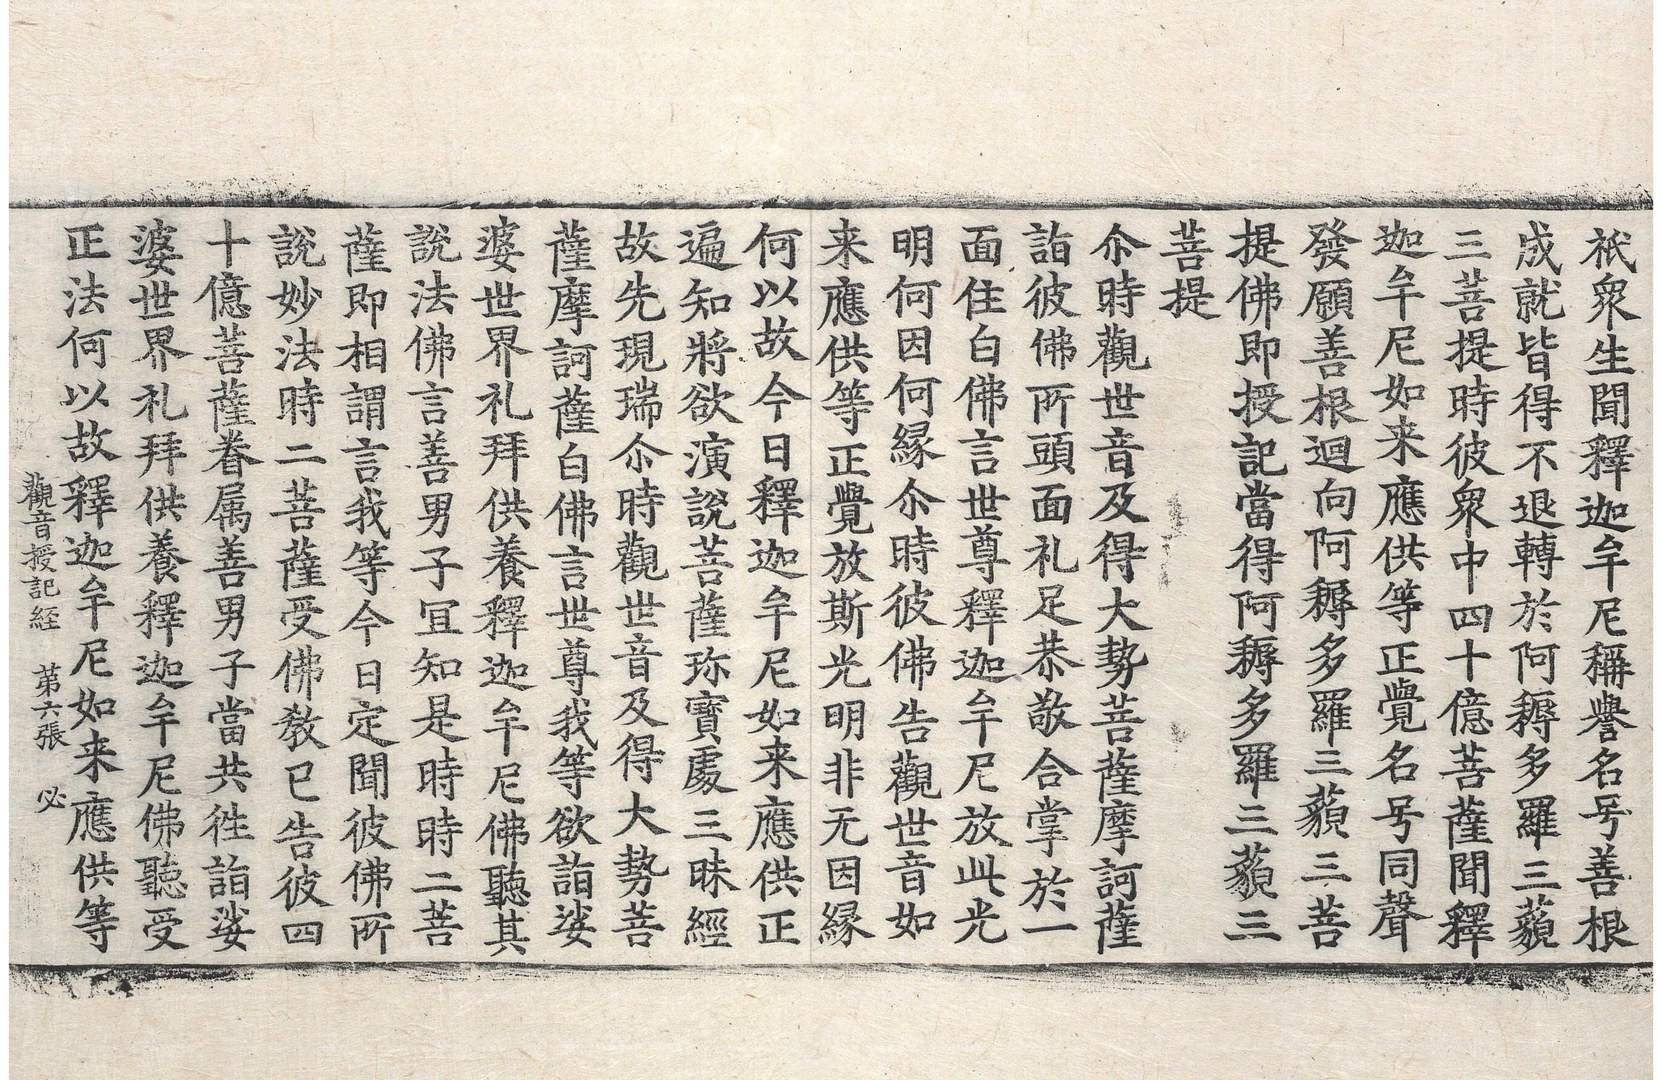 祇衆生聞釋迦牟尼稱譽名号善根
成就皆得不退轉於阿耨多羅三藐
三菩提時彼衆中四十億菩薩聞釋
迦牟尼如来應供等正覺名号同聲
發願善根迴向阿耨多羅三藐三菩
提佛即授記當得阿耨多羅三藐三
菩提
尒時觀世音及得大勢菩薩摩訶薩
詣彼佛所頭面礼足恭敬合掌於一
面住白佛言世尊釋迦牟尼放此光
明何因何緣尒時彼佛告觀世音如
来應供等正覺放斯光明非无因緣
何以故今日釋迦牟尼如来應供正
遍知將欲演說菩薩珎寶處三昧經
故先現瑞尒時觀世音及得大勢菩
薩摩訶薩白佛言世尊我等欲詣娑
婆世界礼拜供養釋迦牟尼佛聽其
說法佛言善男子冝知是時時二菩
薩即相謂言我等今日定聞彼佛所
說妙法時二菩薩受佛教已告彼四
十億菩薩眷属善男子當共徃詣娑
婆世界礼拜供養釋迦牟尼佛聽受
正法何以故釋迦牟尼如来應供等
觀音授記経 第六張 必